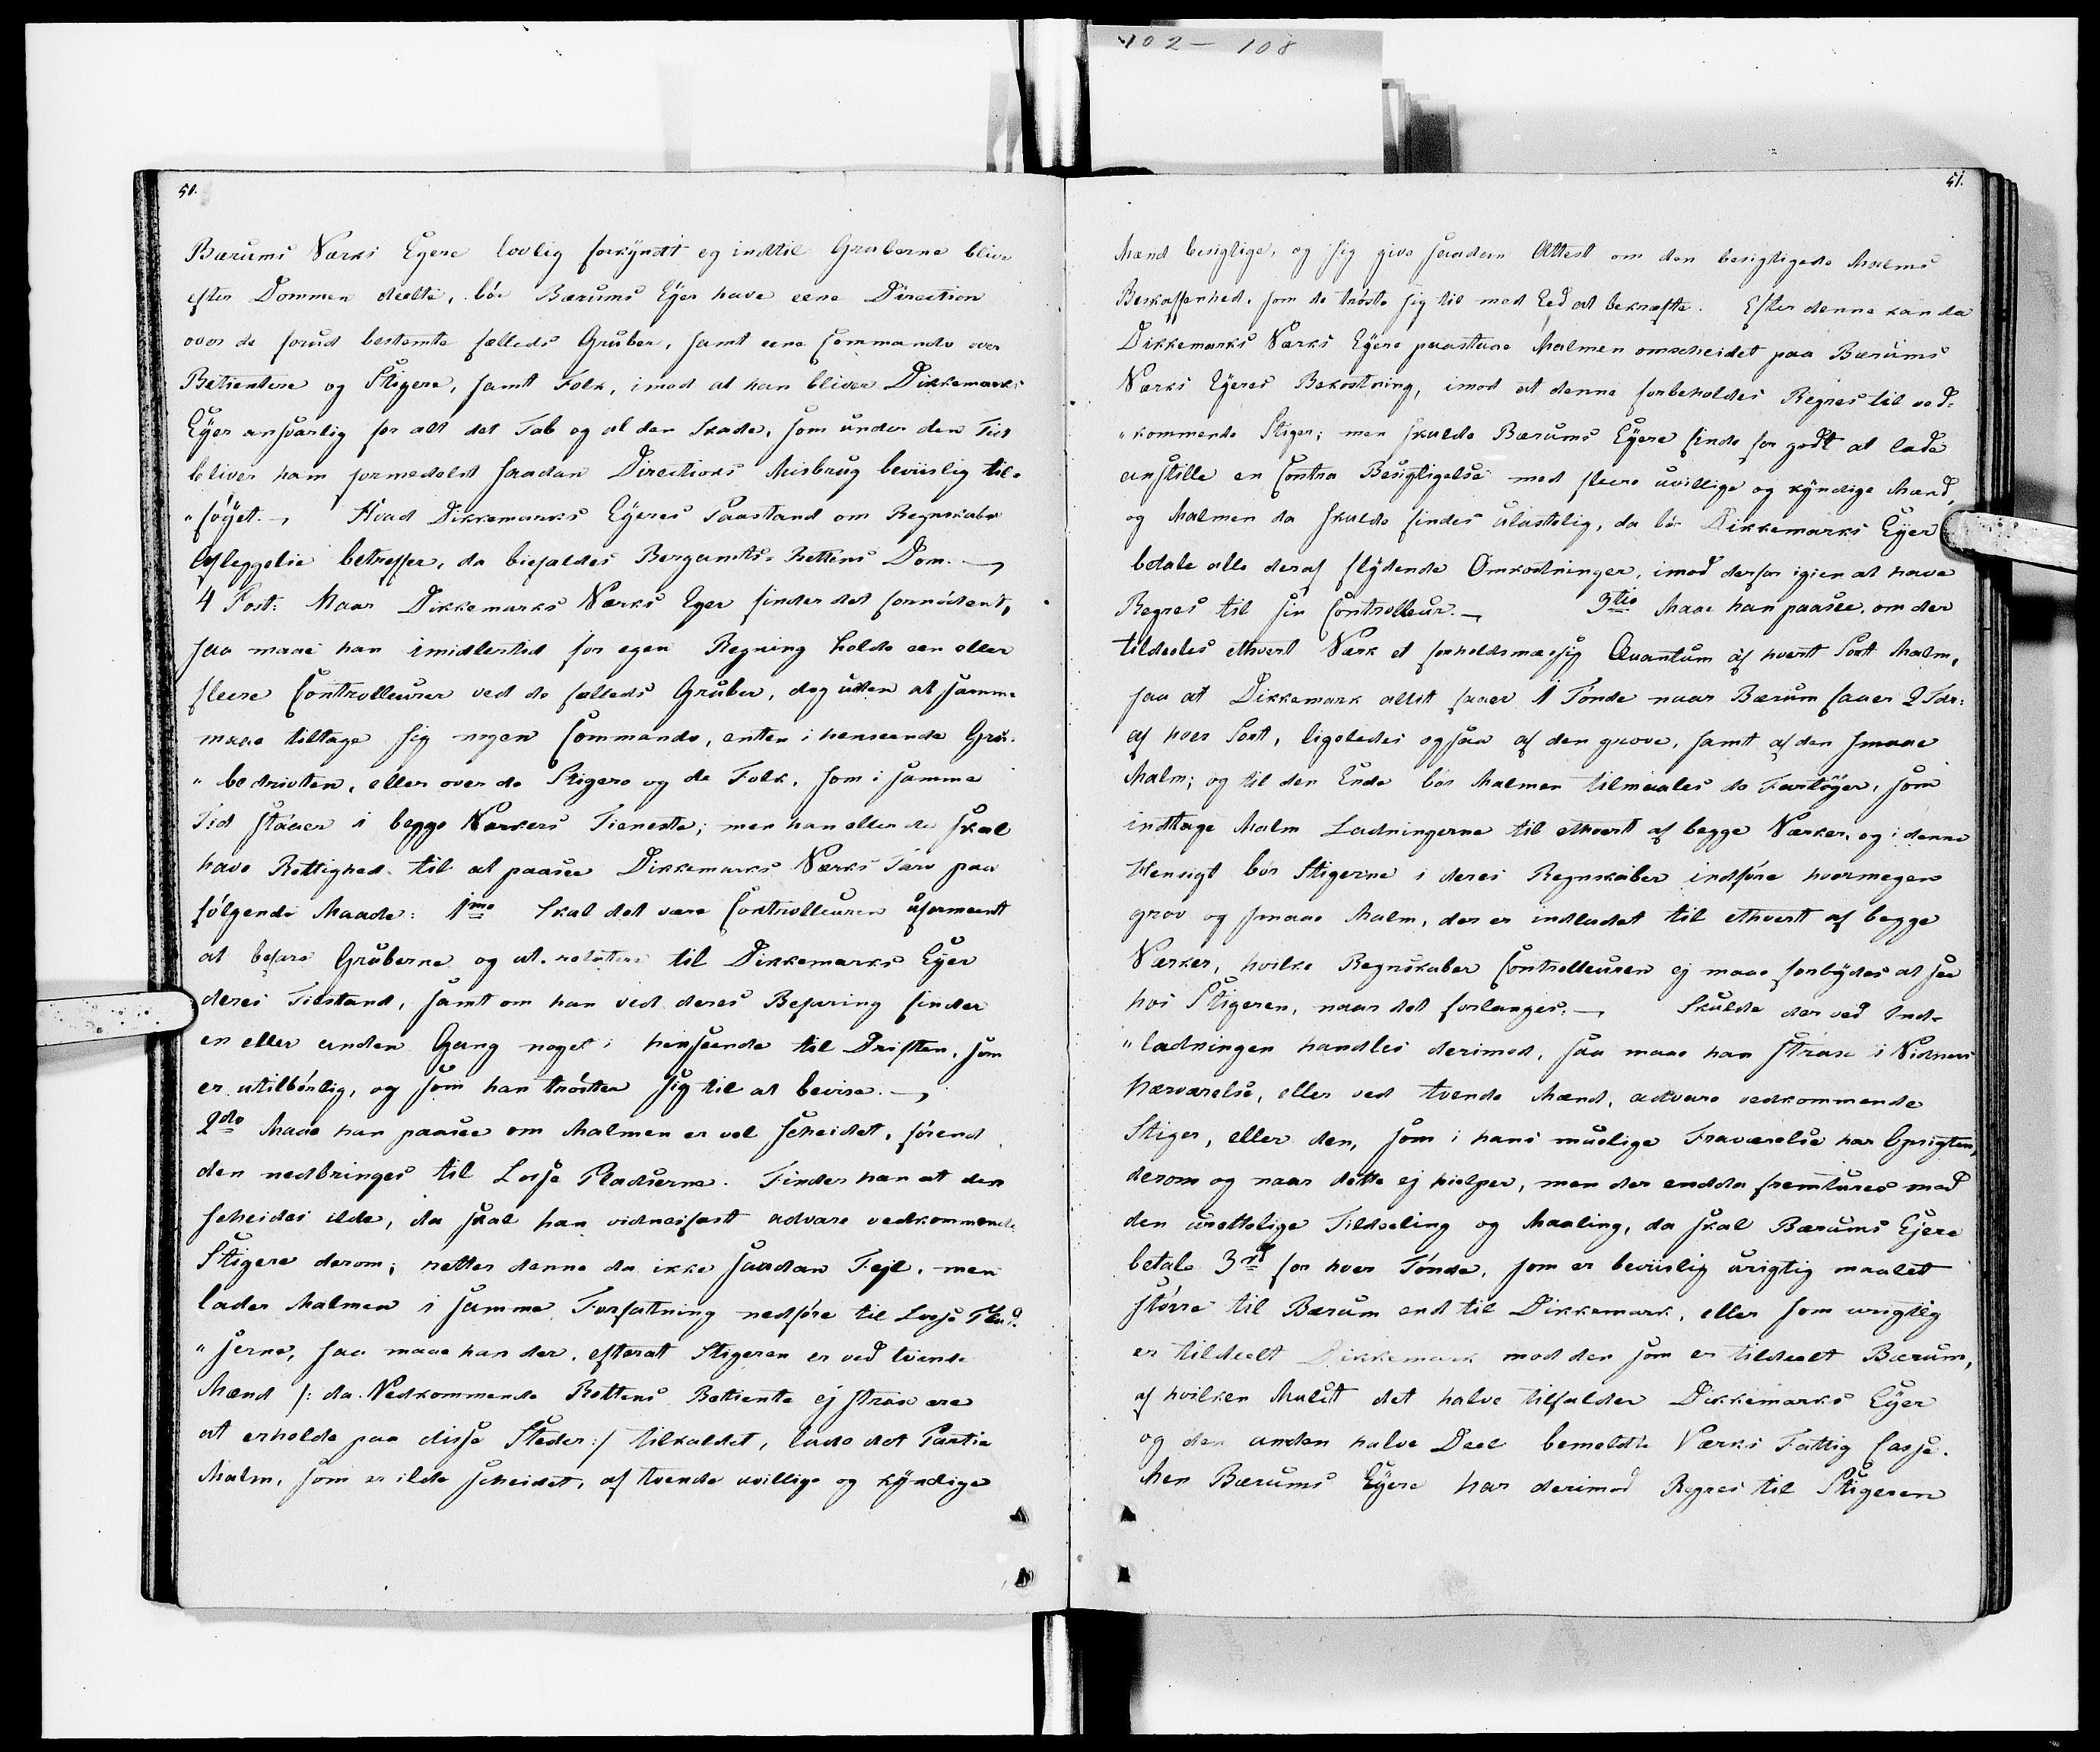 102 - 108
50.
Bærums Værks Eyere lovlig forkyndt og indtil Gruberne blive
efter Dommen deelte, bör Bærums Eyer have eene Direction
over de forud bestemte fælleds Gruber, samt eene Commando over
Betientere og Stigere, samt Folk, imod at han bliver Dikkemarks
Eyer ansvarlig for alt det Tab og al den Skade, som under den Tid
bliver ham formedelst saadan Directions Misbrug beviislig til-
" föyet. — Hvad Dikkemarks Eyeres Paastand om Regnskabs
Aflæggelse betreffer, da biefaldes Bergamts-Rettens Dom. —
4 Post: Naar Dikkemarks Værks Eyer finder det fornödent,
saa maae han imidlertid for egen Regning holde een eller
fleere Controlleurer ved de fælleds Gruber, dog uden at samme
maae tiltage sig nogen Commando, enten i henseende Gru-
" bedrivten, eller over de Stigere og de Folk, som i samme
Tid staaer i begge Værkers Tieneste; men han eller de skal
have Rettighed til at paasee Dikkemarks Værks Tarv paa
fölgende Maade: 1mo Skal det være Controlleuren uformeent
at befare Gruberne og at referere til Dikkemarks Eyer
deres Tilstand, samt om han ved deres Befaring finder
en eller anden Gang noget i henseende til Driften, som
er utilbörlig, og som han tröster sig til at bevise. —
2do Maae han paasee om Malmen er vel scheidet, förend
den nedbringes til Losse Pladserne. Finder han at den
scheides ilde, da skal han vidnesfast advare vedkommende
Stigere derom; retter denne da ikke saadan Fejl, men
lader Malmen i samme Forfatning nedföre til Losse Plad-
" serne, saa maae han der, efterat Stigeren er ved tvende
Mænd /: da Vedkommende Rettens Betiente ej strax ere
at erholde paa disse Steder :/ tilkaldet, lade det Partie
Malm, som er ilde scheidet, af tvende uvillige og kyndige
51.
Mænd besigtige, og sig give saadan Attest om den besigtigede Malms
Beskaffenhed, som de tröste sig til med Eed at bekræfte. Efter denne kan da
Dikkemarks Værks Eyere paastaae Malmen omscheidet paa Bærums
Værks Eyeres Bekostning, imod at denne forbeholdes Regres til ved-
" kommende Stiger; men skulde Bærums Eyere finde for godt at lade
anstille en Contra Besigtigelse med fleere uvillige og kyndige Mænd,
og Malmen da skulde findes ulastelig, da bör Dikkemarks Eyer
betale alle deraf flydende Omkostninger, imod derfor igien at have
Regres til sin Controlleur. — 3tio Maae han paasee, om der
tildeeles ethvert Værk et forholdsmæssig Quantum af hvert Sort Malm,
saa at Dikkemark altid faaer 1 Tönde naar Bærum faaer 2 Tdr:
af hver Sort, ligeledes ogsaa af den grove, samt af den smaae
Malm; og til den Ende bör Malmen tilmaales de Fartöyer, som
indtage Malm Ladningerne til ethvert af begge Værker, og i denne
Hensigt bör Stigerne i deres Regnskaber indföre hvormegen
grov og smaae Malm, der er indladet til ethvert af begge
Værker, hvilke Regnskaber Controlleuren ej maae forbydes at see
hos Stigeren, naar det forlanges. — Skulde der ved Ind-
" ladningen handles derimod, saa maae han strax i Vidners
Nærværelse, eller ved tvende Mænd, advare vedkommende
Stiger, eller den, som i hans muelige Fraværelse har Opsigten,
derom og naar dette ej hielper, men der endda fremtures med
den urettelige Tildeeling og Maaling, da skal Bærums Ejere
betale 3 rd for hver Tönde, som er beviislig urigtig maalet
större til Bærum end til Dikkemark, eller som urigtig
er tildeelt Dikkemark mod den som er tildeelt Bærum,
af hvilken Mulct det halve tilfalder Dikkemarks Eyer
og den anden halve Deel bemeldte Værks Fattig Casse.
Men Bærums Eyere har derimod Regres til Stigeren